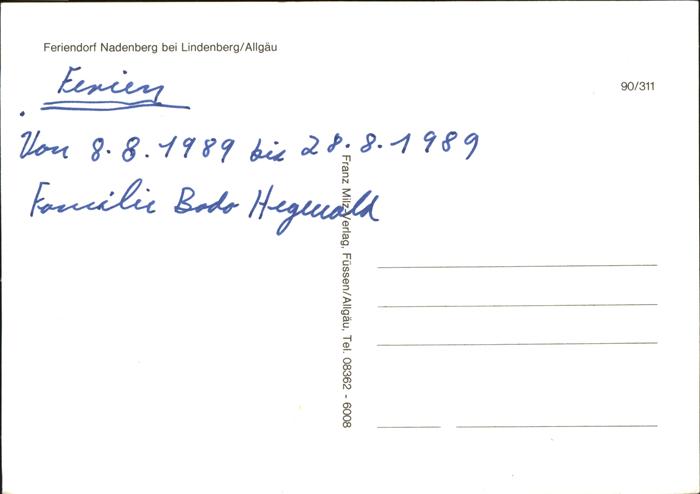 Feriendorf Nadenberg bei Lindenberg/Allgäu
90/311
Ferien
Von 8.8.1989 bis 28.8.1989
Familie Bodo Hegewald
Franz Milz-Verlag, Füssen/Allgäu, Tel. 08362 - 6008